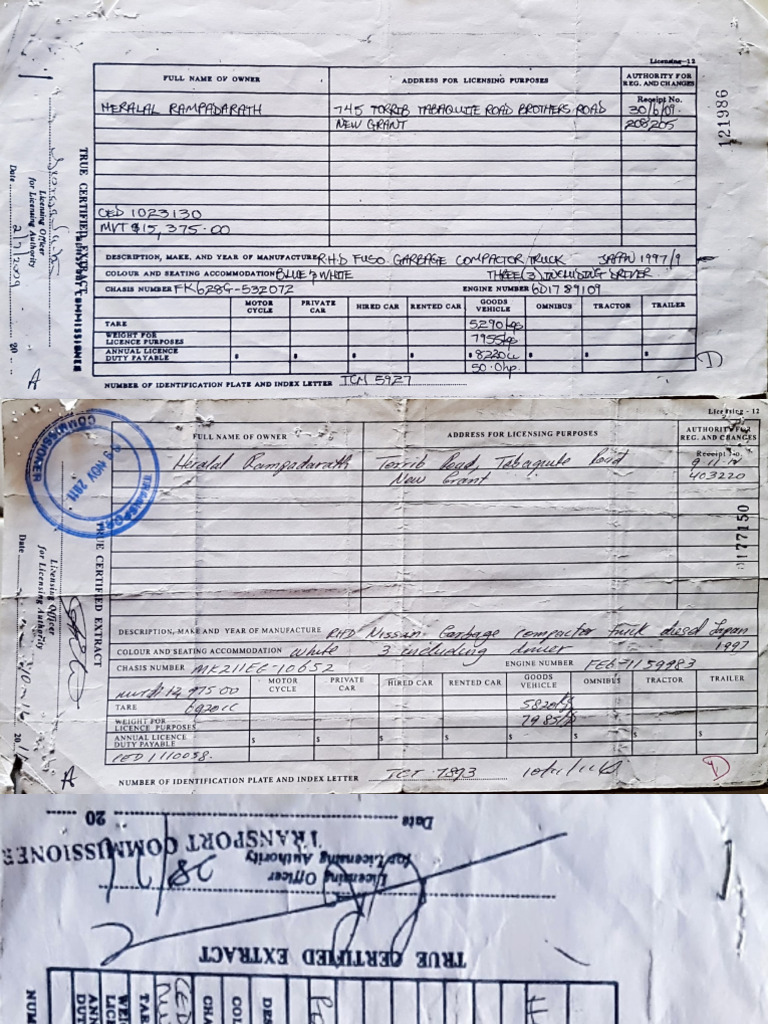 Licensing-12
FULL NAME OF OWNER ADDRESS FOR LICENSING PURPOSES AUTHORITY FOR REG. AND CHANGES
Receipt No.
HERALAL RAMPADARATH 745 TORRIB TABAQUITE ROAD BROTHERS ROAD 30/6/09.
NEW GRANT 208205
121986
CED 1023130
MVT $15,375.00
DESCRIPTION, MAKE, AND YEAR OF MANUFACTURE RHD FUSO GARBAGE COMPACTOR TRUCK JAPAN 1997/9
COLOUR AND SEATING ACCOMMODATION BLUE & WHITE THREE (3) INCLUDING DRIVER
CHASIS NUMBER FK628G-532072 ENGINE NUMBER 6D1789109
MOTOR CYCLE PRIVATE CAR HIRED CAR RENTED CAR GOODS VEHICLE OMNIBUS TRACTOR TRAILER
TARE 5290kgs
WEIGHT FOR LICENCE PURPOSES 7955kgs
ANNUAL LICENCE DUTY PAYABLE $ $ $ $ $ 8220cc $ $ $
50.0hp.
D
NUMBER OF IDENTIFICATION PLATE AND INDEX LETTER TCM 5927
TRUE CERTIFIED EXTRACT
Licensing Officer
for Licensing Authority
Date 2/7/2009 20
A
Licensing - 12
FULL NAME OF OWNER ADDRESS FOR LICENSING PURPOSES AUTHORITY FOR REG. AND CHANGES
Receipt No.
Heralal Rampadarath Torrib Road, Tabaquite Road
New Grant 403220
177150
DESCRIPTION, MAKE AND YEAR OF MANUFACTURE RHD Nissan Garbage Compactor Truck diesel Japan
1997
COLOUR AND SEATING ACCOMMODATION white 3 including driver
CHASSIS NUMBER MK211EG-10652 ENGINE NUMBER
MOTOR CYCLE PRIVATE CAR HIRED CAR RENTED CAR GOODS VEHICLE OMNIBUS TRACTOR TRAILER
TARE 6920cc
WEIGHT FOR LICENCE PURPOSES
ANNUAL LICENCE DUTY PAYABLE $ $ $ $ $ $ $ $
NUMBER OF IDENTIFICATION PLATE AND INDEX LETTER TCT 7893
D
TRUE CERTIFIED EXTRACT
Licensing Officer
for Licensing Authority
Date 20
A
COMMISSIONER
NOV 2011
Date 20
TRANSPORT COMMISSIONER
for Licensing Authority
Licensing Officer
TRUE CERTIFIED EXTRACT